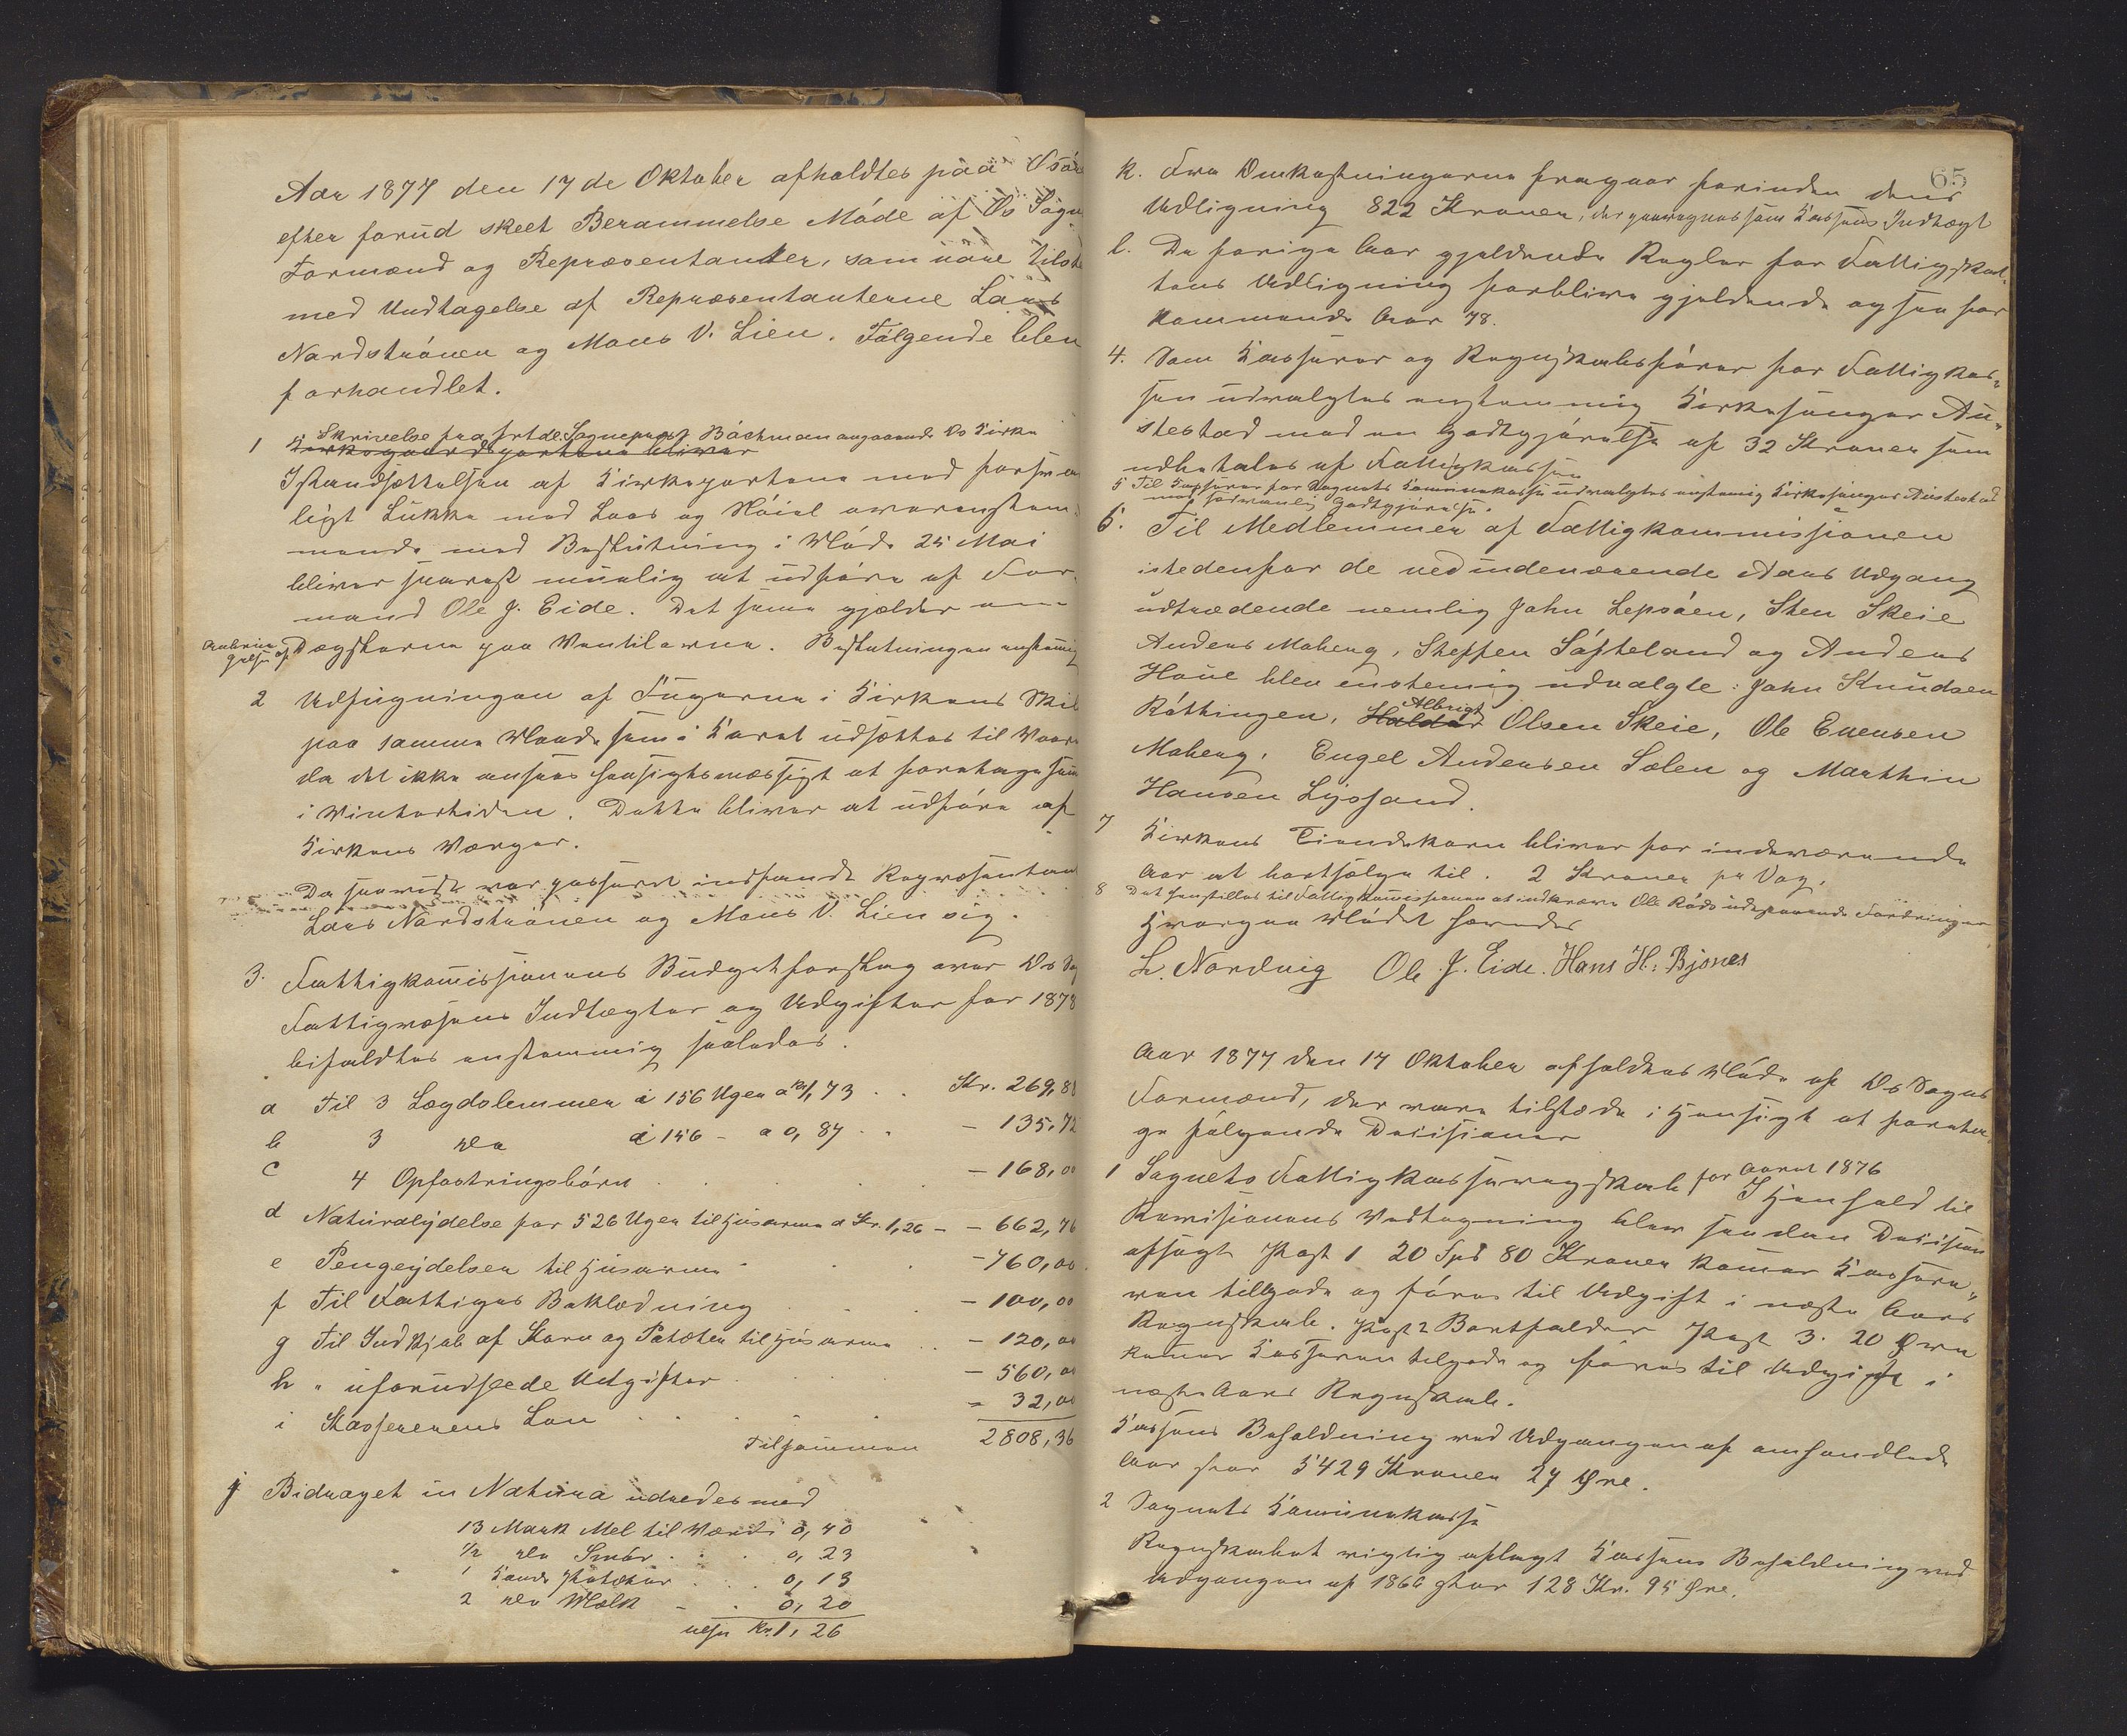 Aar 1877 den 17de Oktober afholdtes paa Osøre
efter forud skeet Berammelse Møde af Os Sogns
Formænd og Repræsentanter, som vare tilste
med Undtagelse af Repræsentanterne Lars
Nordstrønen og Mons V. Lien. Følgende blev
forhandlet.
1 Skrivelse fra Hr. Sogneprest Bøchman angaaende Os Kirke
Kirkegaardsportene bliver
Istandsættelsen af Kirkeportene med forsva
ligt Lukke med Laas og Nøiel overenstem-
mende med Beslutning i Møde 25 Mai
bliver snarest muelig at udføre af For-
mand Ole J. Eide. Det samme gjælder om
Anbrin-
gelse af Dægslerne paa Ventilerne. Beslutningen enstemig
2 Udfugningen af Fugerne i Kirkens Skil
paa samme Maade som i Koret udsættes til Vaare
da det ikke ansees hensigtsmæssigt at foretages saa
i Vintertiden. Dette bliver at udføre af
Kirkens Værger.
Da saavidt var passeret indfandt Repræsentant
Lars Nordstrønen og Mons V. Lien sig.
3. Fattigkomissionens Budgetforslag over Os So
Fattigvæsens Indtægter og Udgifter for 1878
bifaldtes enstemmig saaledes.
a Til 3 Lægdslemmer i 156 Uger a Kr 1,73 . . Kr. 269,88
b 3 do i 156 - a 0,87 . . - 135,72
c 4 Opfostringsbørn . . . . - 168,00
d Naturalydelse for 526 Uger til Husarme a Kr. 1,26 - - 662,76
e Pengeydelser til Husarme . . . - 760,00
f Til Fattiges Beklædning . . . - 100,00
g Til Indkjøb af Korn og Poteter til Husarme . . - 120,00
h " uforudseede Udgifter . . . . - 560,00
i Kassererens Løn . . . . . - 32,00
Tilsammen 2808,36
j Bidraget in Natura udredes med
13 Mark Mel til Værdi 0,70
1/2 do Smør . . . 0,23
1 Kande Poteter . . . 0,13
2 do Melk - . 0,20
Kr. 1,26
65
k. Fra Omkostningerne fragaar forinden dens
Udligning 822 Kroner, der paaregnes som Kassens Indtægt
l. De forige Aar gjeldende Regler for Fattigskat-
tens Udligning forblive gjeldende ogsaa for
kommende Aar 78.
4. Som Kasserer og Regnskabsfører for Fattigkas-
sen udvalgtes enstemmig Kirkesanger Au-
stestad med en Godtgjørelse af 32 Kroner som
udbetales af Fattigkassen
5 Til Kasserer for Sognets Kommunekasse udvalgtes enstemig Kirkesanger Austestad
med sedvanlig Godtgjørelse.
6. Til Medlemmer af Fattigkommissionen
istedenfor de ved indeværende Aars Udgang
udtrædende nemlig John Lepsøen, Sten Skeie
Anders Moberg, Steffen Søfteland og Anders
Haue blev enstemig udvalgte: John Knudsen
Røttingen, Haldor Albrigt Olsen Skeie, Ole Evensen
Moberg, Engel Andersen Sølen og Marthin
Hansen Lyssand.
7 Kirkens Tiendekorn bliver for indeværende
Aar at bortsælge til. 2 Kroner pr Vog.
8 Det henstilles til Fattigkomissionen at indkræve Ole Røds udestaaende Fordringer
Hvorpaa Mødet hævedes
L. Nordvig Ole J. Eide. Hans H. Bjønes
Aar 1877 den 17 Oktober afholdtes Møde af Os Sogns
Formænd, der vare tilstede i Hensigt at foreta-
ge følgende Decisioner
1 Sognets Fattigkasseregnskab for Aaret 1876
I Henhold til
Revisionens Vedtegning blev saadan Decision
afsagt Post 1 20 Spd 80 Kroner kommer Kassere-
ren tilgode og føres til Udgift i næste Aars
Regnskab. Post 2 Bortfalder Post 3. 20 Øre
kommer Kassereren tilgode og føres til Udgift i
næste Aars Regnskab.
Kassens Beholdning ved Udgangen af omhandlede
Aar stor 5429 Kroner 27 Øre.
2 Sognets Kommunekasse
Regnskabet rigtig aflagt Kassens Beholdning ved
Udgangen af 1866 stor 128 Kr. 95 Øre.